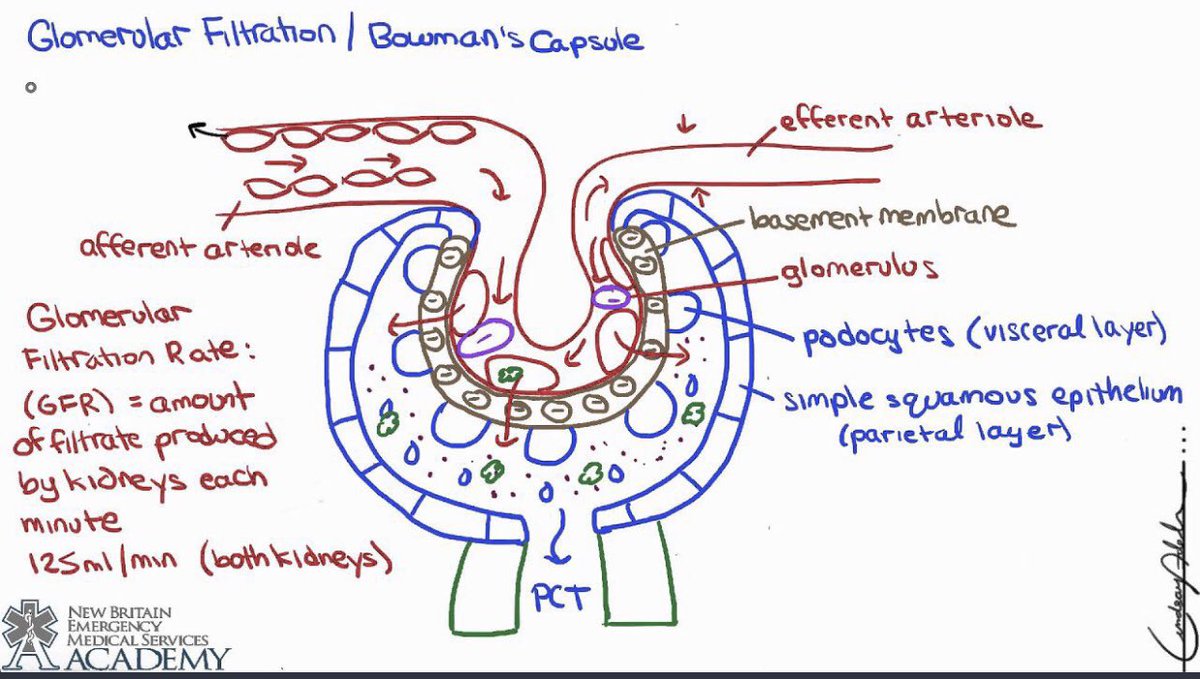 Glomerular Filtration / Bowman's Capsule
efferent arteriole
basement membrane
afferent arteriole
glomerulus
Glomerular
Filtration Rate:
(GFR) = amount
of filtrate produced
by kidneys each
minute
125ml/min (both kidneys)
podocytes (visceral layer)
simple squamous epithelium
(parietal layer)
PCT
NEW BRITAIN
EMERGENCY
MEDICAL SERVICES
ACADEMY